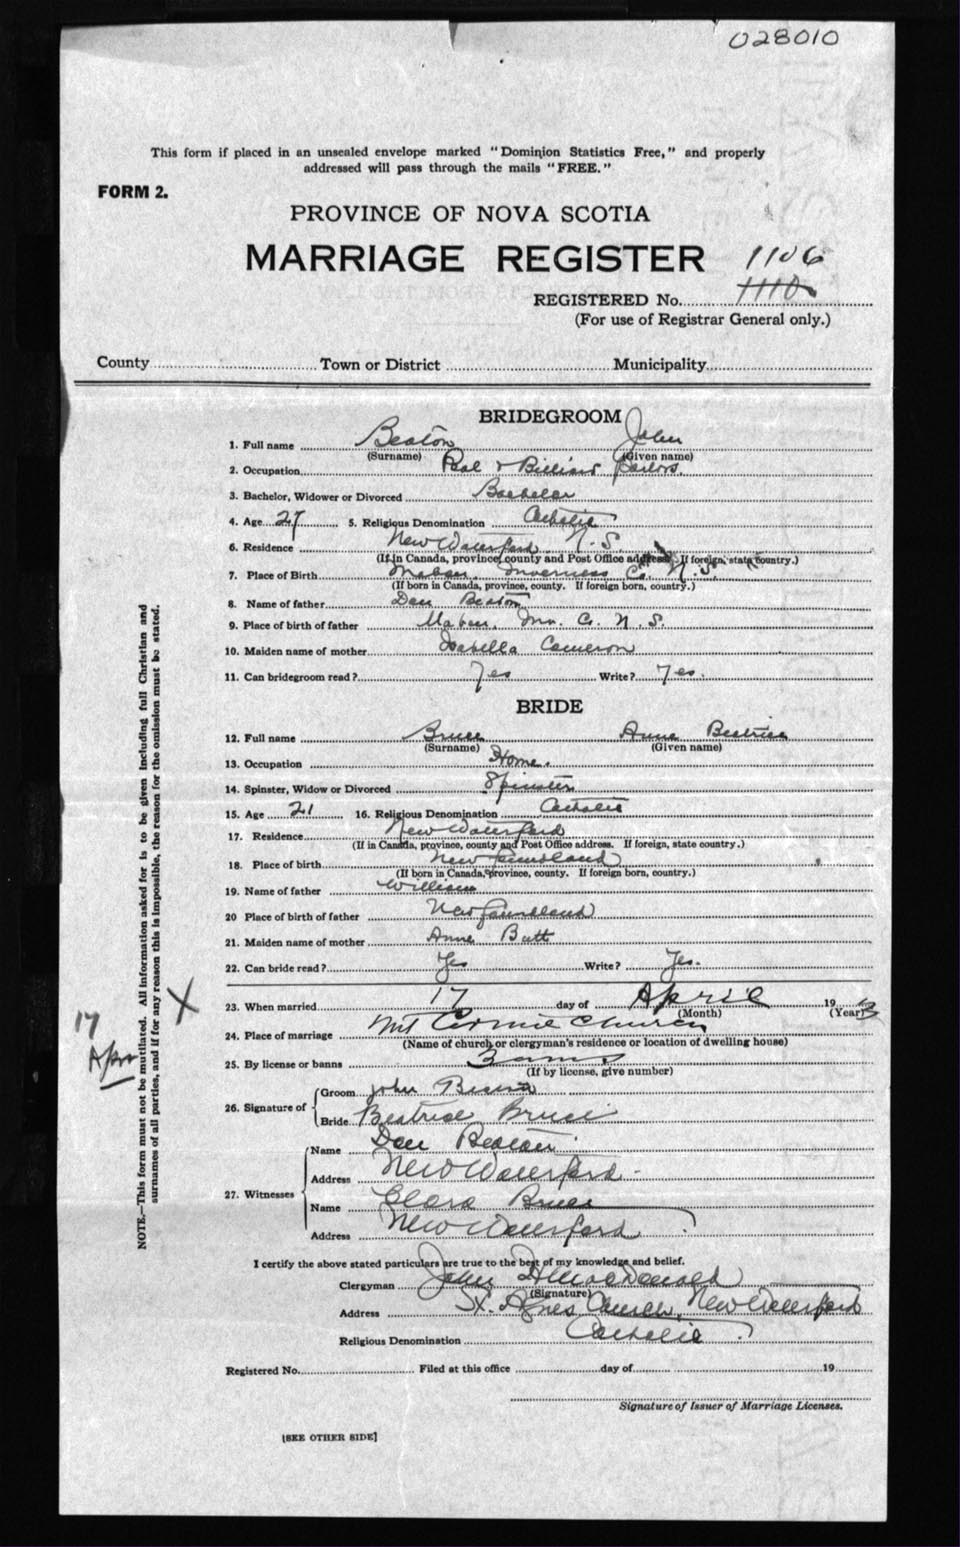 028010
This form if placed in an unsealed envelope marked "Dominion Statistics Free," and properly
addressed will pass through the mails "FREE."
FORM 2.
PROVINCE OF NOVA SCOTIA
MARRIAGE REGISTER 1106
REGISTERED No. 1110
(For use of Registrar General only.)
County Town or District Municipality
BRIDEGROOM
1. Full name Beaton John
(Surname) (Given name)
2. Occupation Pool & Billiard Parlors.
3. Bachelor, Widower or Divorced Bachelor
4. Age 27 5. Religious Denomination Catholic
6. Residence New Waterford N. S.
(If in Canada, province, county and Post Office address. If foreign, state country.)
7. Place of Birth Mabou, Inverness Co. N. S.
(If born in Canada, province, county. If foreign born, country.)
8. Name of father Dan Beaton
9. Place of birth of father Mabou, Inv. C. N. S.
10. Maiden name of mother Isabella Cameron
11. Can bridegroom read? Yes Write? Yes.
BRIDE
12. Full name Bruce Anne Beatrice
(Surname) (Given name)
13. Occupation Home.
14. Spinster, Widow or Divorced Spinster
15. Age 21 16. Religious Denomination Catholic
17. Residence New Waterford
(If in Canada, province, county and Post Office address. If foreign, state country.)
18. Place of birth Newfoundland
(If born in Canada, province, county. If foreign born, country.)
19. Name of father William
20 Place of birth of father Newfoundland
21. Maiden name of mother Anne Butt
22. Can bride read? Yes Write? Yes.
23. When married 17 day of April 19
(Month) (Year)
24. Place of marriage Mt Carmel Church
(Name of church or clergyman's residence or location of dwelling house)
25. By license or banns Banns
(If by license, give number)
26. Signature of Groom John Beaton
Bride Beatrice Bruce
27. Witnesses
Name Dan Beaton
Address New Waterford
Name Clara Bruce
Address New Waterford
I certify the above stated particulars are true to the best of my knowledge and belief.
Clergyman John H MacDonald
(Signature)
Address St. Agnes Church, New Waterford
Religious Denomination Catholic
Registered No. Filed at this office day of 19
Signature of Issuer of Marriage Licenses.
[SEE OTHER SIDE]
NOTE.—This form must not be mutilated. All information asked for is to be given including full Christian and
surnames of all parties, and if for any reason this is impossible, the reason for the omission must be stated.
X
17
Apr